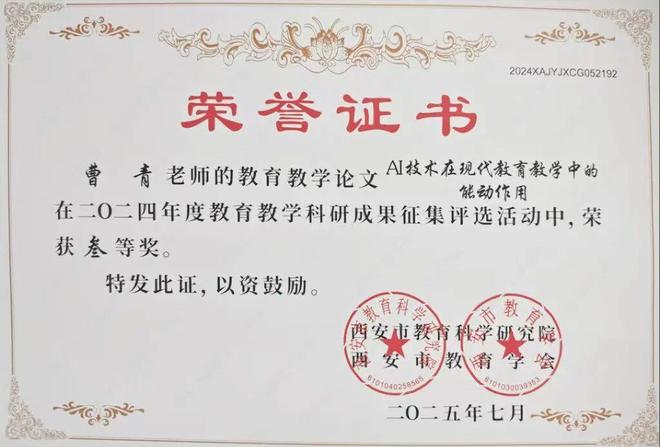 2024XAJYJXCG052192
荣誉证书
曹 青老师的教育教学论文AI技术在现代教育教学中的
能动作用
在二〇二四年度教育教学科研成果征集评选活动中,荣
获叁等奖。
特发此证,以资鼓励。
西安市教育科学研究院
西安市教育学会
西安市教育科学研究院
6101040258565
西安市教育学会
6101030039383
二〇二五年七月